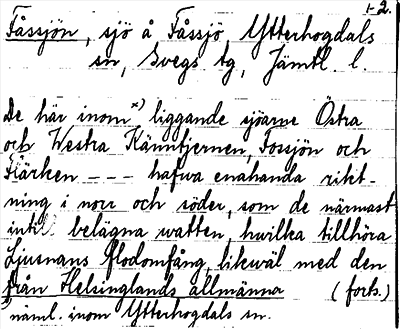 1-2.
Fåssjön, sjö å Fåssjö, Ytterhogdals
sn, Svegs tg, Jämtl. l.
De här inom x) liggande sjöarne Östra
och Westra Känntjernen, Fossjön och
Flärken --- hafwa enahanda rikt-
ning i norr och söder, som de närmast
intil belägna watten hwilka tillhöra
Ljusnans flodomfång, likwäl med den
från Helsinglands allmänna (forts.)
x) näml. inom Ytterhogdals sn.